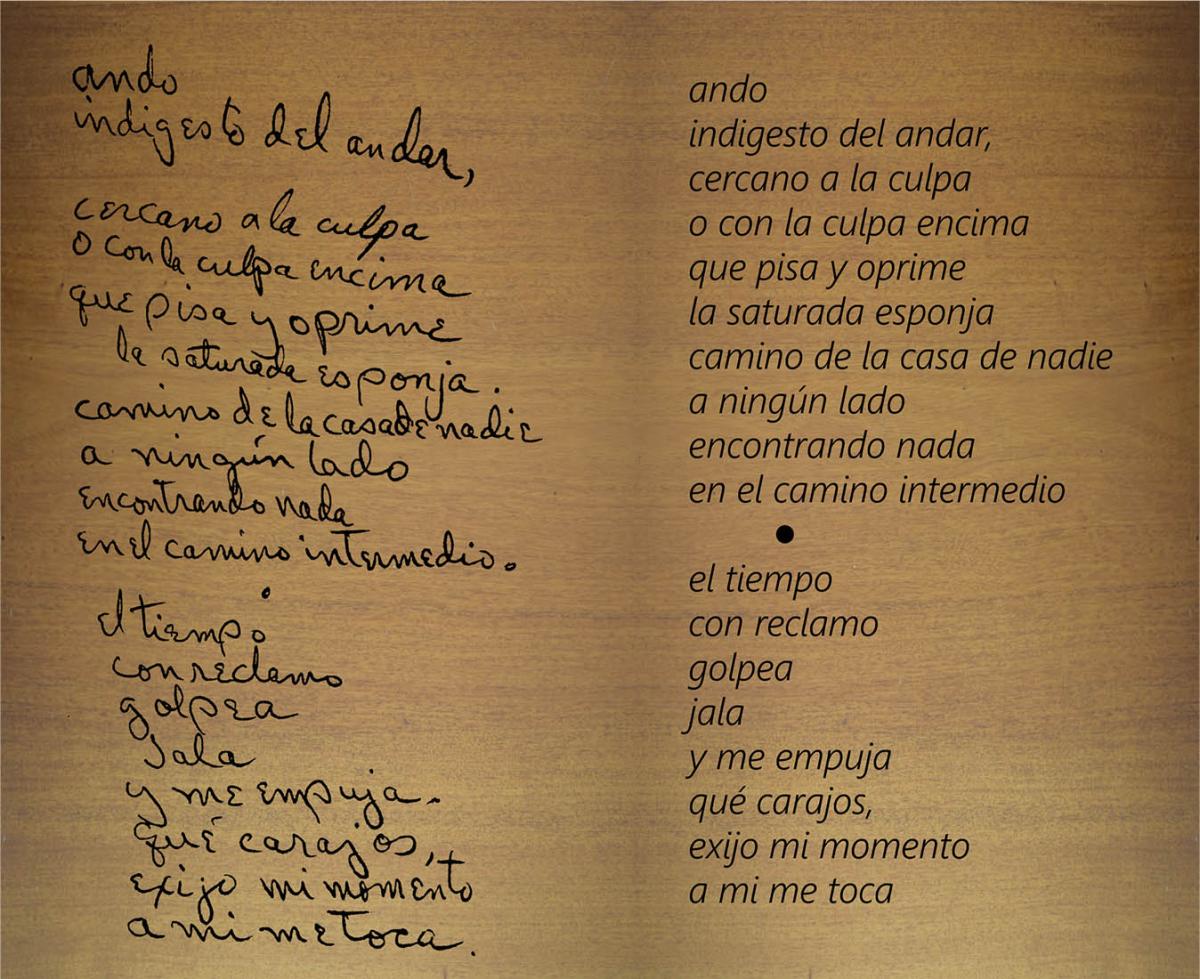 ando
indigesto del andar,
cercano a la culpa
o con la culpa encima
que pisa y oprime
la saturada esponja.
camino de la casa de nadie
a ningún lado
encontrando nada
en el camino intermedio.
•
el tiempo
con reclamo
golpea
Jala
y me empuja.
qué carajos,
exijo mi momento
a mi me toca.
ando
indigesto del andar,
cercano a la culpa
o con la culpa encima
que pisa y oprime
la saturada esponja
camino de la casa de nadie
a ningún lado
encontrando nada
en el camino intermedio
•
el tiempo
con reclamo
golpea
jala
y me empuja
qué carajos,
exijo mi momento
a mi me toca